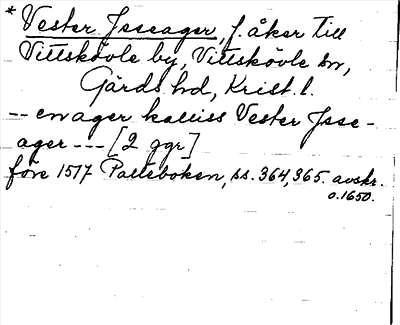 * Vester Jsseager, f. åker till
Vittskövle by, Vittskövle sn,
Gärds hd, Krist. l.
-- en ager kalliss Vester Jsse-
ager --- [2 ggr]
före 1517 Palleboken, ss. 364, 365. avskr.
o. 1650.